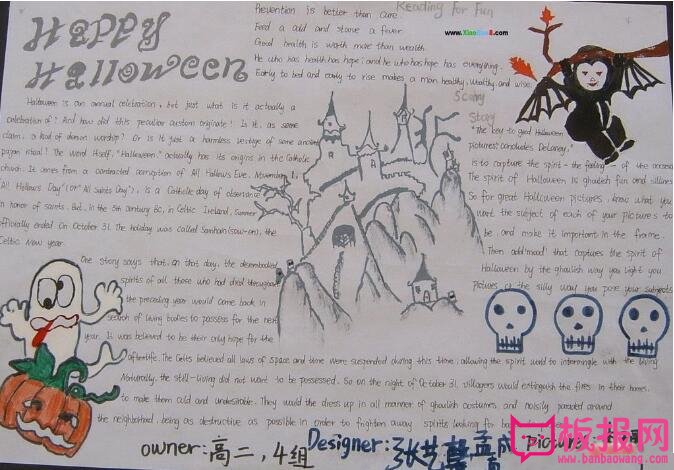 Happy
Halloween
Prevention is better than cure.
Feed a cold and starve a fever
Good health is worth more than wealth
He who has health has hope; and he who has hope has everything.
Early to bed and early to rise makes a man healthy, wealthy and wise.
Reading for Fun
Scary
Story
Halloween is an annual celebration, but just what is it actually a
celebration of? And how did this peculiar custom originate? Is it, as some
claim, a kind of demon worship? Or is it just a harmless vestige of some ancient
pagan ritual? The word itself, "Halloween," actually has its origins in the Catholic
church. It comes from a contracted corruption of All Hallows Eve. November 1,
"All Hollows Day" (or "All Saints Day"), is a Catholic day of observance
in honor of saints. But, in the 5th century BC, in Celtic Ireland, summer
officially ended on October 31. The holiday was called Samhain (sow-en), the
Celtic New year.
One story says that, on that day, the disembodied
spirits of all those who had died throughout
the preceding year would come back in
search of living bodies to possess for the next
year. It was believed to be their only hope for the
afterlife. The Celts believed all laws of space and time were suspended during this time, allowing the spirit world to intermingle with the living
Naturally, the still-living did not want to be possessed. So on the night of October 31, villagers would extinguish the fires in their homes,
to make them cold and undesirable. They would the dress up in all manner of ghoulish costumes and noisily paraded around
the neighborhood, being as destructive as possible in order to frighten away spirits looking for
"The key to good Halloween
pictures," concludes Delaney,
is to capture the spirit - the feeling - of the occasion
The spirit of Halloween is ghoulish fun and silliness
So for great Halloween pictures, know what you
want the subject of each of your pictures to
be, and make it important in the frame.
Then add 'mood' that captures the spirit of
Halloween by the ghoulish way you light you
pictures or the silly way you pose your subjects
owner: 高二,4组
Designer: 张
Picture:
板报网
www.banbaowang.com